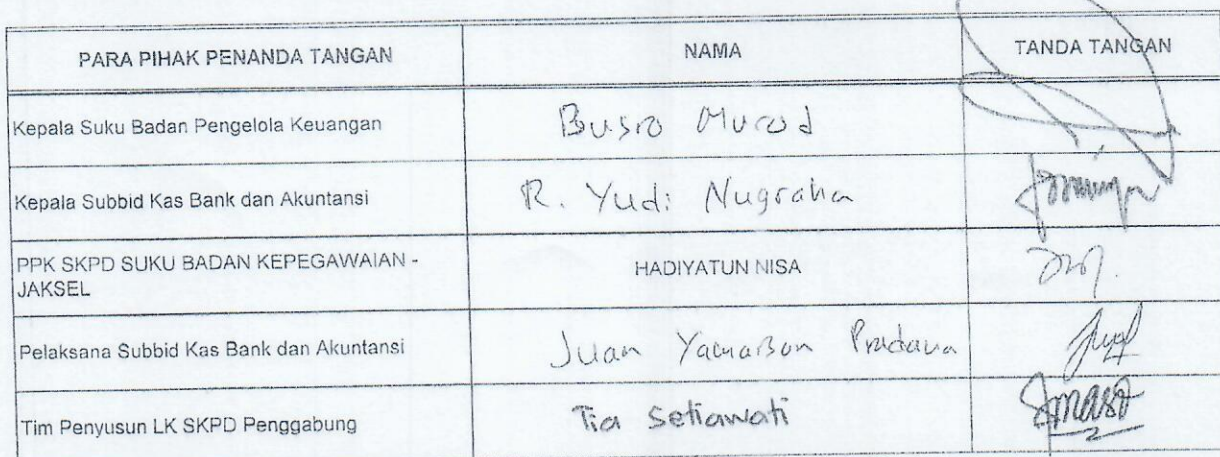 PARA PIHAK PENANDA TANGAN NAMA TANDA TANGAN
Kepala Suku Badan Pengelola Keuangan Busro Murod
Kepala Subbid Kas Bank dan Akuntansi R. Yudi Nugraha
PPK SKPD SUKU BADAN KEPEGAWAIAN -
JAKSEL HADIYATUN NISA
Pelaksana Subbid Kas Bank dan Akuntansi Juan Pradana
Tim Penyusun LK SKPD Penggabung Tia Setiawati